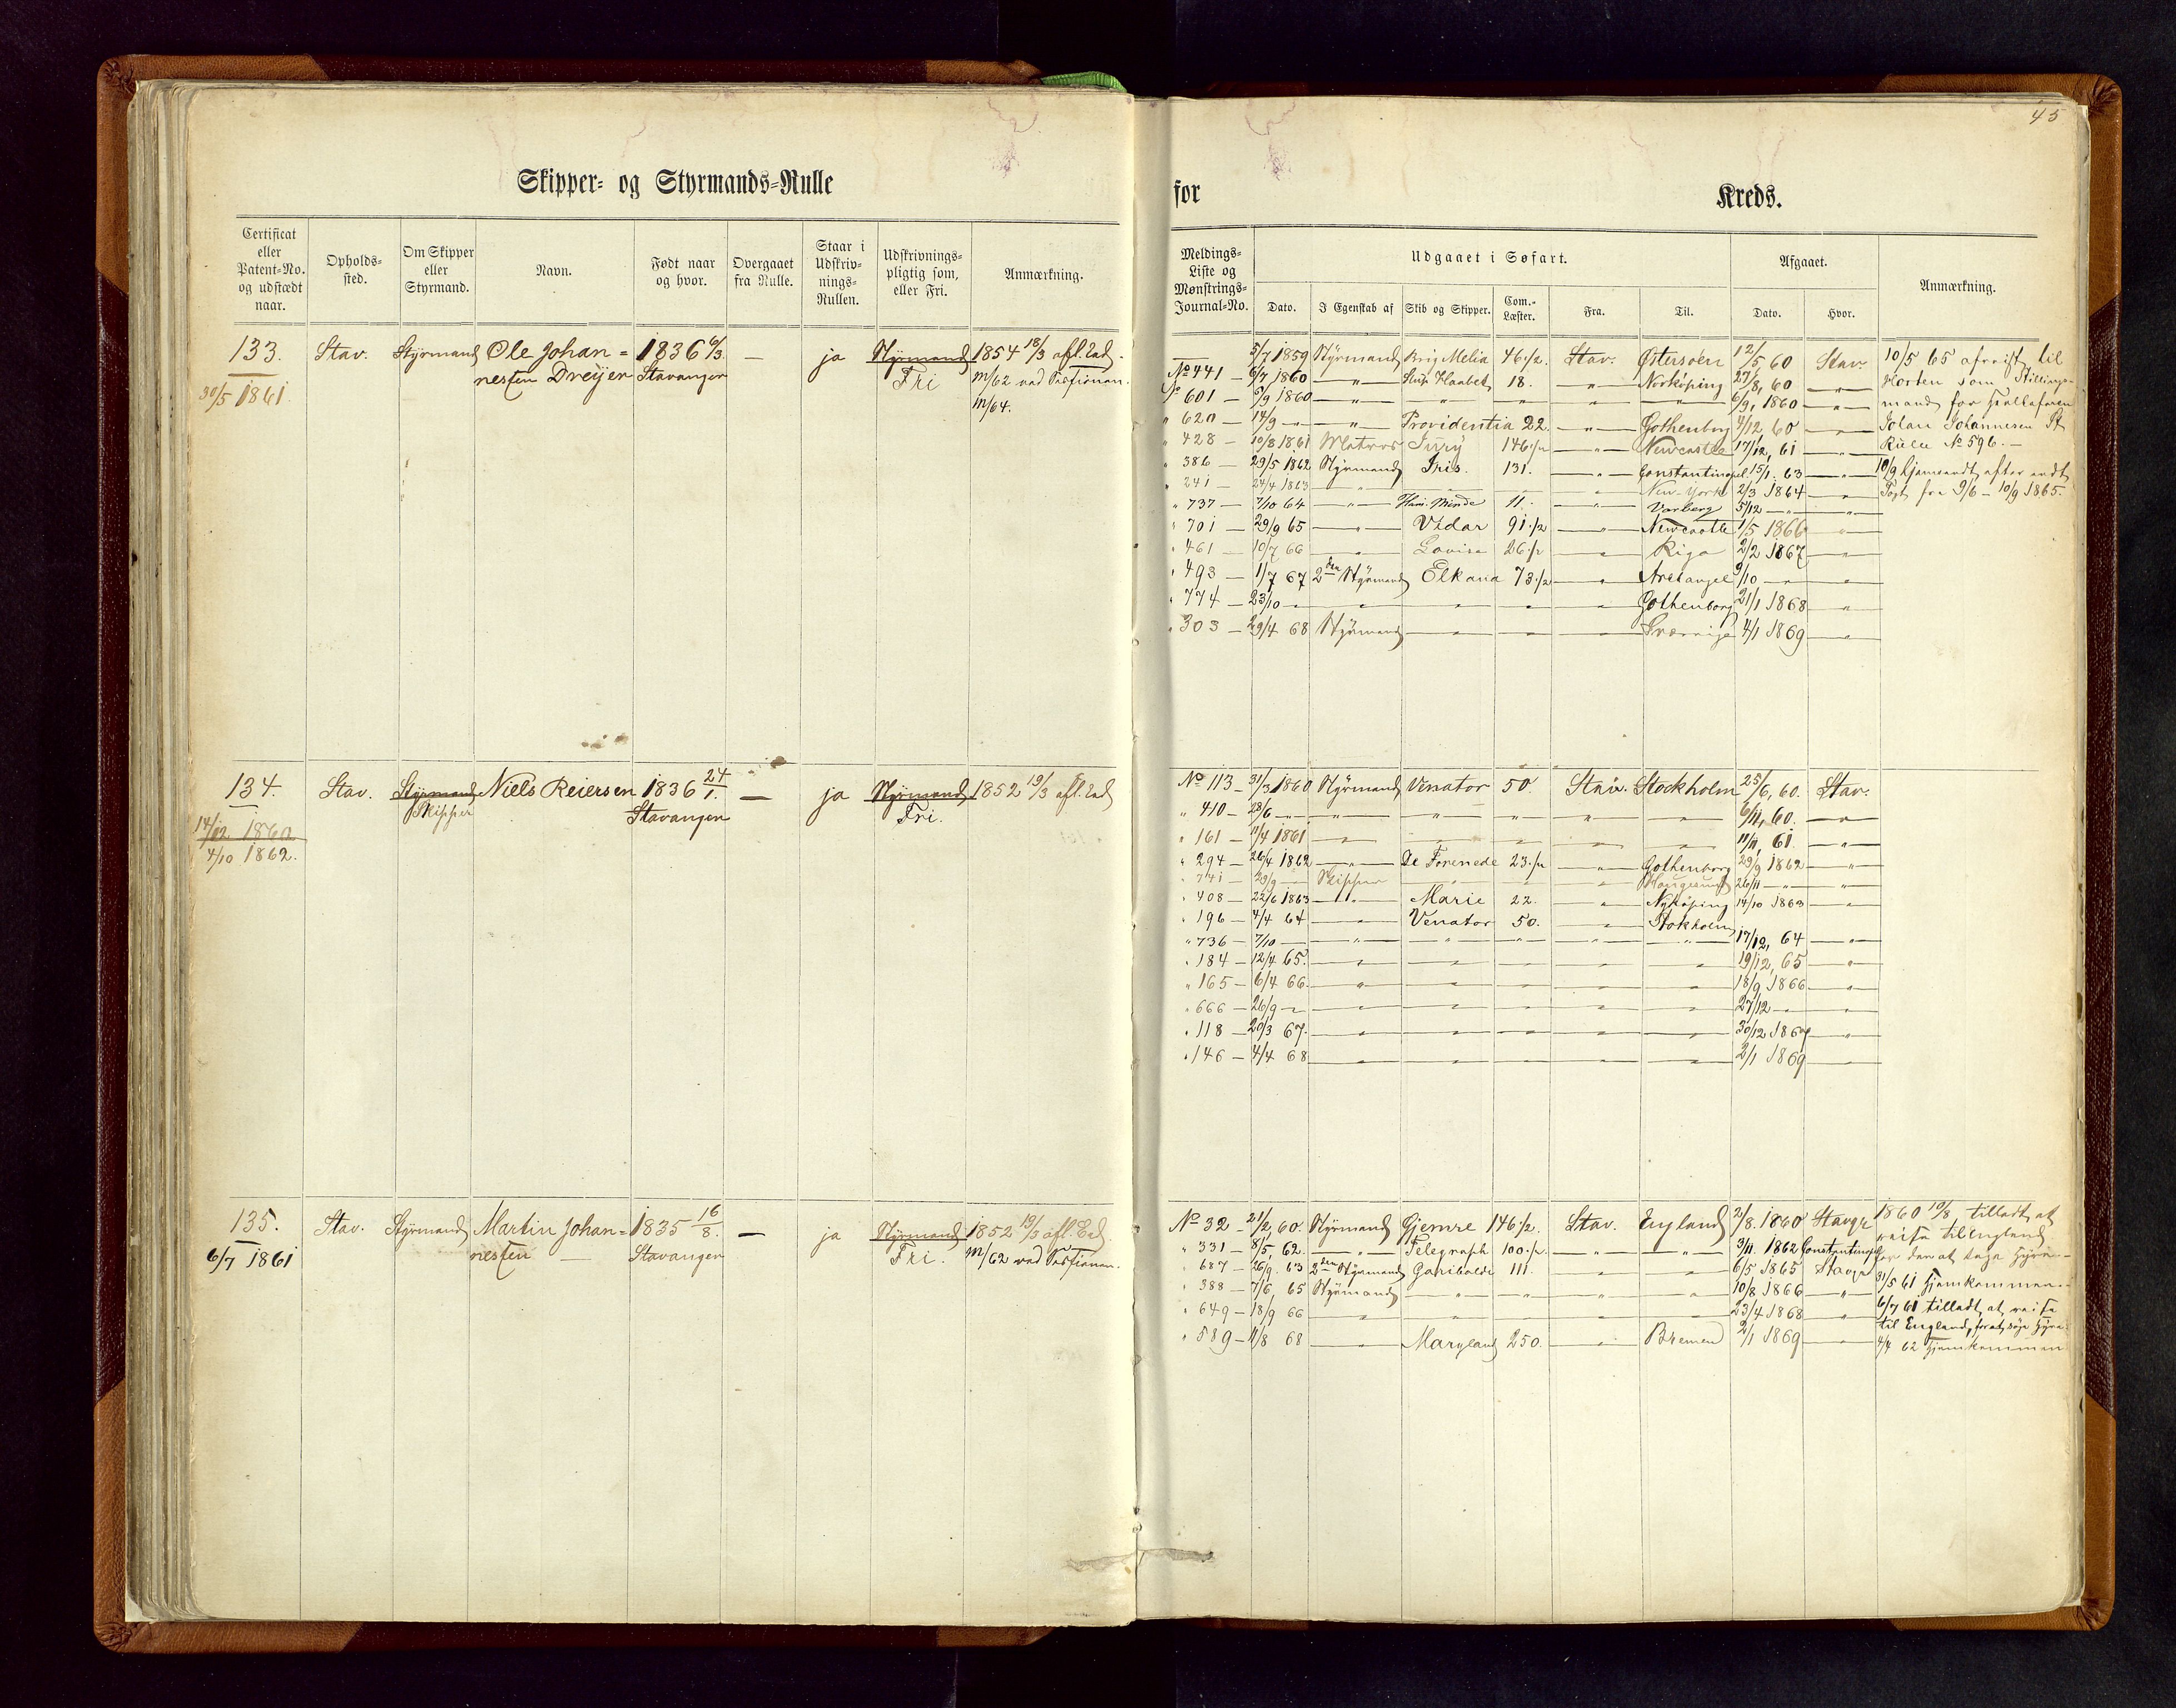 45
Skipper- og Styrmands-Rulle
for Kreds.
Certificat eller Patent-No. og udstædt naar.
Opholds-sted.
Om Skipper eller Styrmand.
Navn.
Født naar og hvor.
Overgaaet fra Rulle.
Staar i Udskriv-nings-Rullen.
Udskrivnings-pligtig som, eller Fri.
Anmærkning.
Meldings-Liste og Mønstrings-Journal-No.
Udgaaet i Søfart.
Dato. I Egenskab af Skib og Skipper. Com.-Læster. Fra. Til.
Afgaaet.
Dato. Hvor.
Anmærkning.
133. Stav. Styrmand Ole Johan= 1836 6/3. — ja Styrmand 1854 18/3 afl. Ed.
nesen Dreyer Stavanger Fri m/62 ved
30/5 1861. m/64.
— 5/7 1859 Styrmand Brig Melia 46 1/2. Stav. Østersøen 12/5 60 Stav.
No 441 — 6/7 1860 — " — Slup Haabet 18. — " — Norköping 27/8, 60 — " —
No 601 — 6/9 1860 — " — " — " — " — " — 6/9, 1860 — " —
" 620 — 14/9 — " — " — Providentia 22. — " — Gothenborg 4/12 60 — " —
" 428 — 10/8 1861 Matros Juny 146 1/2 — " — Newcastle 17/12, 61 — " —
" 386 — 29/5 1862 Styrmand Iris. 131. — " — Constantinopel 15/1. 63 — " —
" 241 — 24/4 1863 — " — " — " — " — New-York 2/3 1864 — " —
" 737 — 7/10 64 — " — Hans Minde 11. — " — Varberg 5/12 — " — " —
" 701 — 29/9 65 — " — Vidar 91 1/2 — " — Newcastle 1/5 1866 — " —
" 461 — 10/7 66 — " — Lovise 26 1/2 — " — Riga 2/2 1867 — " —
" 493 — 1/7 67 2den Styrmand Elkana 73 1/2 — " — Archangel 9/10 — " — " —
" 774 — 23/10 — " — " — " — " — " — Gothenborg 21/1 1868 — " —
" 303 — 29/4 68 Styrmand — " — " — " — Sverrige 4/1 1869 — " —
10/5 65 afreist til
Horten som Stillings-
mand for
Johannesen St
Rulle No 596. —
10/9 hjemsendt efter endt
Togt fra 9/6 — 10/9 1865.
134. Stav. Styrmand Niels Reiersen 1836 24/1. — ja Styrmand 1852 19/3 afl. Ed
Skipper Stavanger Fri.
14/12 1860
4/10 1862.
No 113 — 31/3 1860 Styrmand Venator 50. Stav. Stockholm 25/6, 60. Stav.
" 410 — 28/6 — " — " — " — " — " — " — 6/11, 60. — " —
" 161 — 11/4 1861 — " — " — " — " — " — 11/11, 61. — " —
" 294 — 26/4 1862 — " — De Forenede 23 1/2 — " — Gothenborg 29/9 1862 — " —
" 741 — 29/9 — Skipper — " — " — " — Haugesund 26/11 — " — " —
" 408 — 22/6 1863 — " — Marie 22. — " — Nyköping 14/10 1863 — " —
" 196 — 4/4 64 — " — Venator 50. — " — Stokholm
" 736 — 7/10 — " — " — " — " — " — 17/12, 64 — " —
" 184 — 12/4 65. — " — " — " — " — " — 19/12, 65 — " —
" 165 — 6/4 66 — " — " — " — " — " — 18/9 1866 — " —
" 666 — 26/9 — " — " — " — " — " — " — 27/12 — " — " —
" 118 — 20/3 67. — " — " — " — " — " — 30/12 1867 — " —
" 146 — 4/4 68 — " — " — " — " — " — 2/1 1869 — " —
135. Stav. Styrmand Martin Johan= 1835 16/8. — ja Styrmand 1852 19/3 afl. Ed.
6/7 1861 nesen — Stavanger Fri. m/62 ved
No 32 — 21/2, 60. Styrmand Gjemre 146 1/2. Stav. England 2/8. 1860 Stavgr
" 331 — 8/5, 62. — " — Telegraph 100 1/2 — " — " — 3/11. 1862 Constantinopel
" 687 — 26/9. 63 2den Styrmand Garibaldi 111. — " — " — 6/5 1865 Stavgr
" 388 — 7/6, 65 Styrmand — " — " — " — " — 10/8 1866 — " —
" 649 — 18/9 66 — " — " — " — " — " — 23/4 1868 — " —
" 589 — 11/8 68 — " — Maryland 250. — " — Bremen 2/1 1869 — " —
1860 10/8 tilladt at
reise til England
for der at tage Hyre —
31/5 61 hjemkommen. —
6/7 61 tilladt at reise
til England, for at søge Hyre.
4/4 62 Hjemkommen